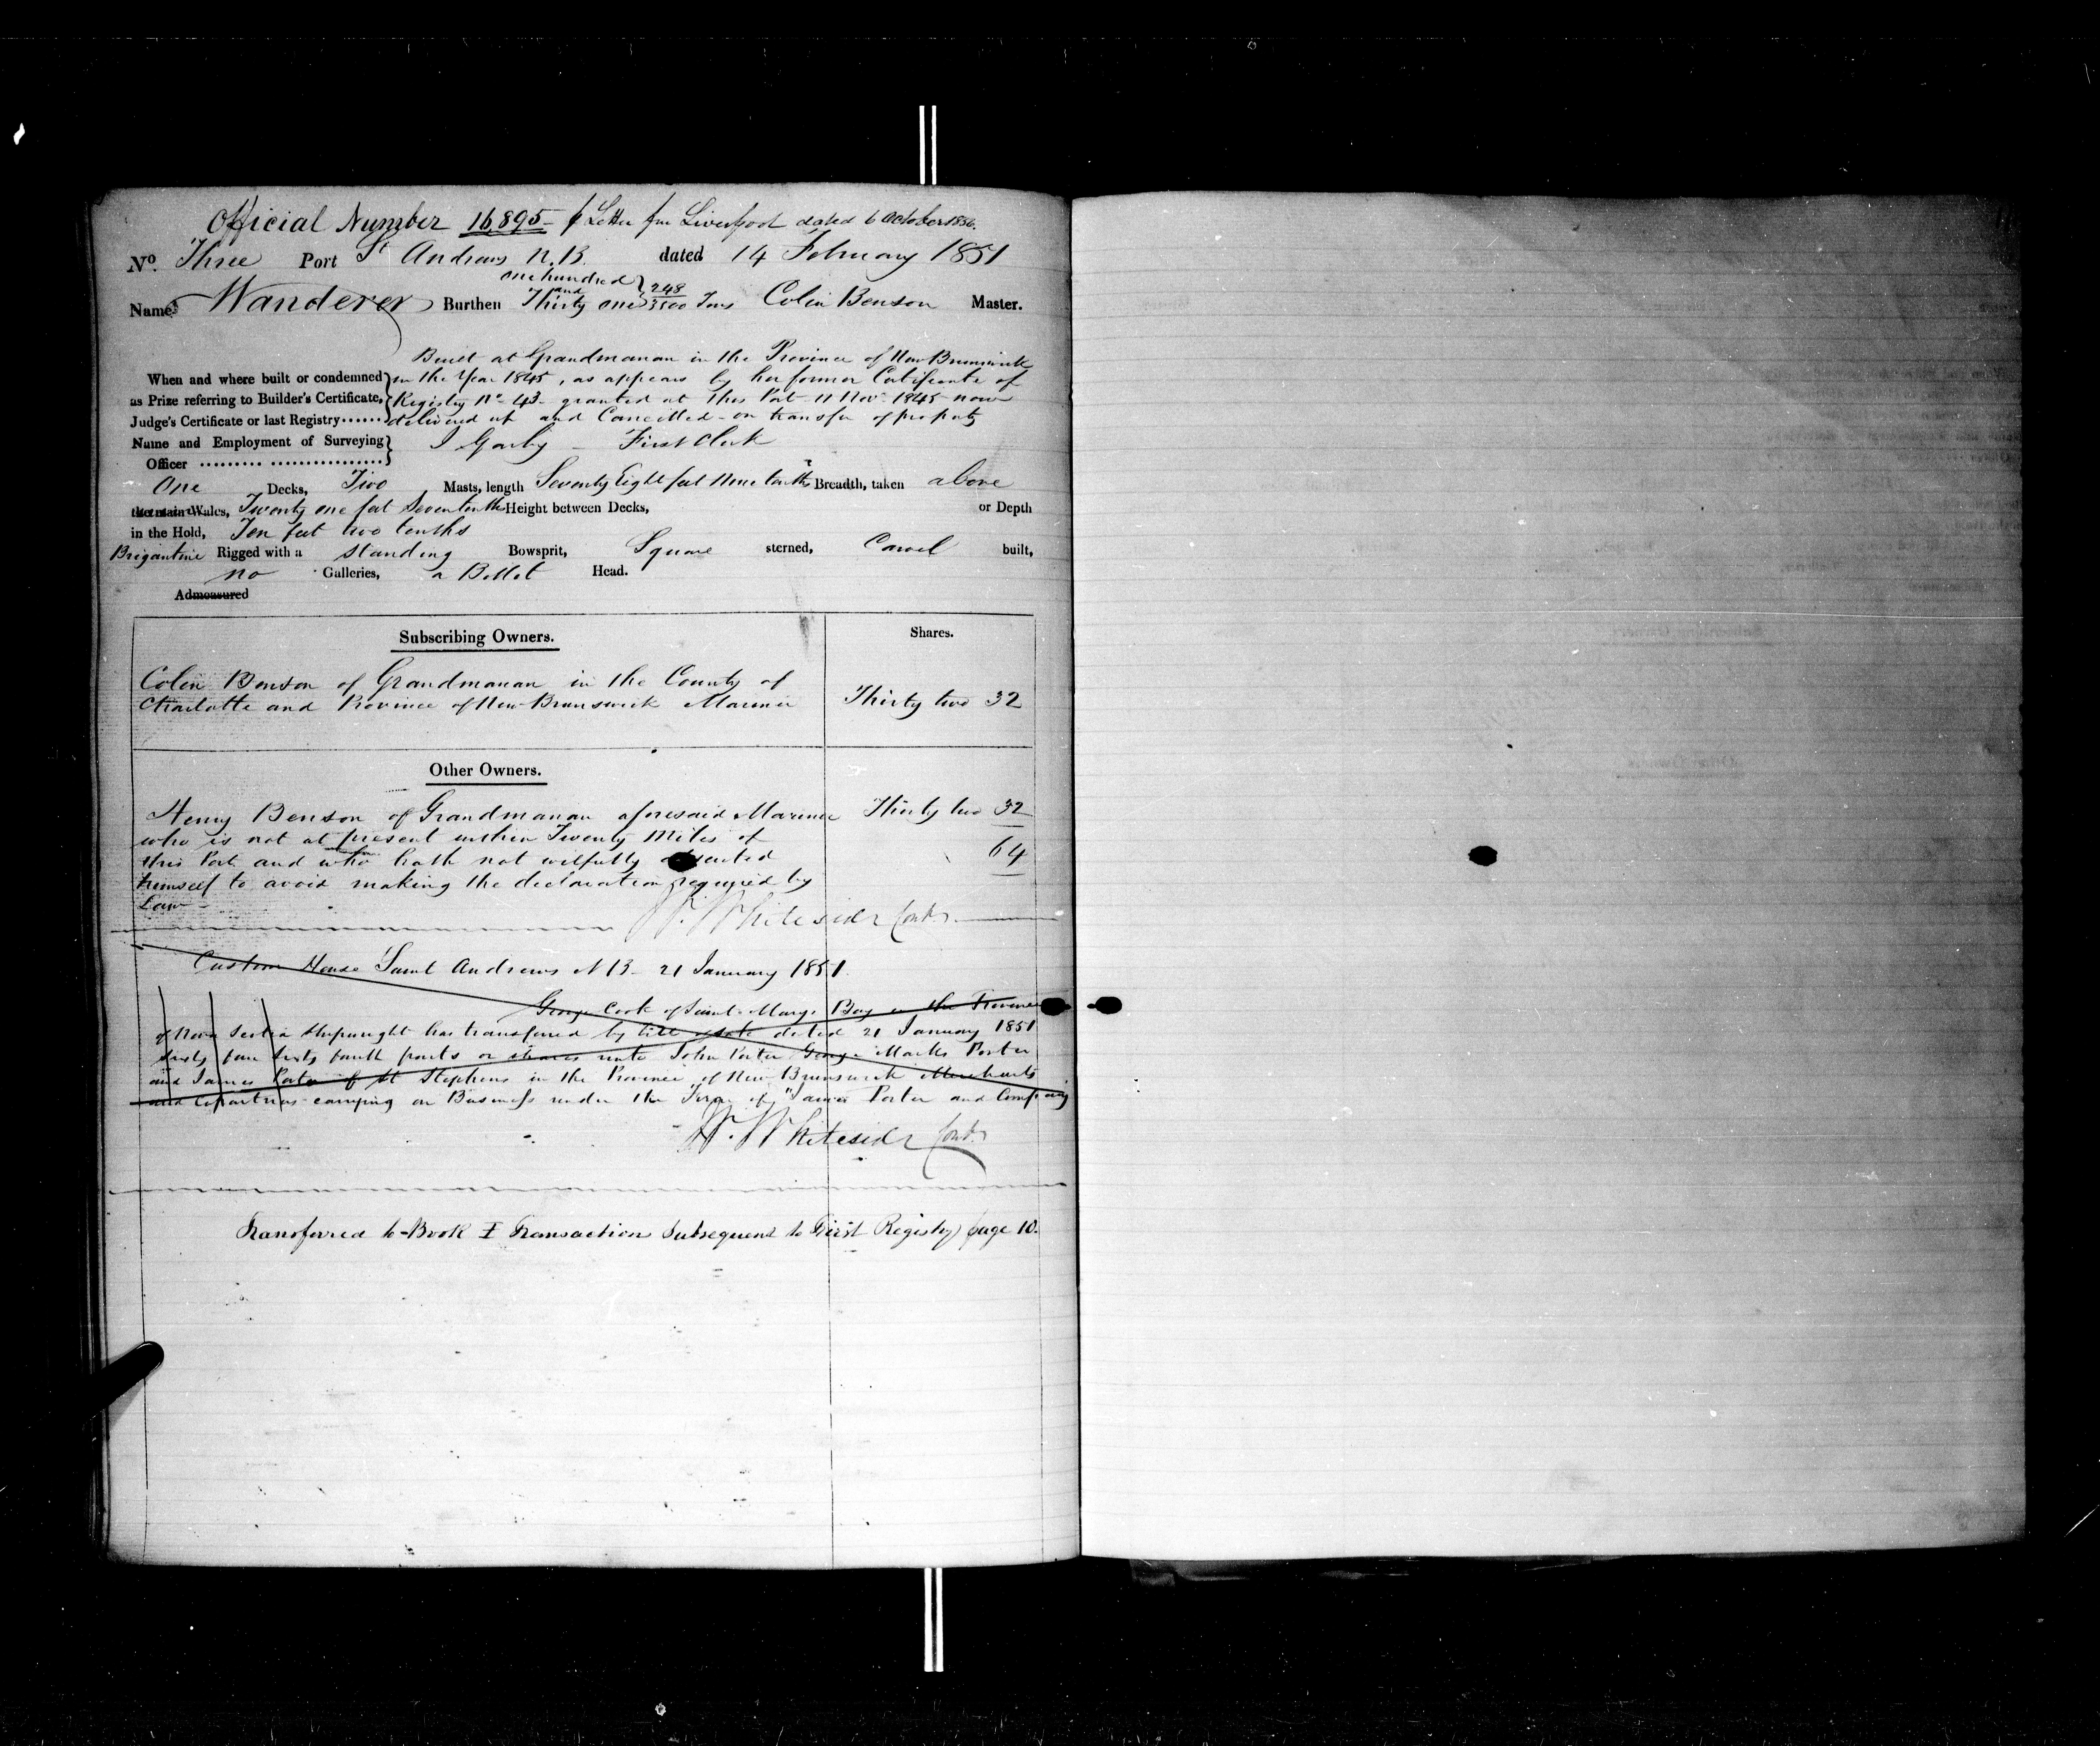 Official Number 16,895 - p Letter from Liverpool dated 6 October 1856.
No. Three Port St Andrews N.B. dated 14 February 1851
one hundred
Name Wanderer Burthen and Thirty one 248/3500 Tons Colin Benson Master.
Built at Grandmanan in the Province of New Brunswick
When and where built or condemned in the Year 1845, as appears by her former Certificate of
as Prize referring to Builder's Certificate, Registry No. 43 granted at this Port 11 Nov. 1845 now
Judge's Certificate or last Registry...... delivered up and Cancelled - on transfer of property
Name and Employment of Surveying
Officer - First Clerk
One Decks, Two Masts, length Seventy Eight feet Nine tenths Breadth, taken above
the main Wales, Twenty one feet Seven tenths Height between Decks, or Depth
in the Hold, Ten feet two tenths
Brigantine Rigged with a Standing Bowsprit, Square sterned, Carvel built,
no Galleries, a Billet Head.
Admeasured
Subscribing Owners. Shares.
Colin Benson of Grandmanan in the County of
Charlotte and Province of New Brunswick Mariner Thirty two 32
Other Owners.
Henry Benson of Grandmanan aforesaid Mariner Thirty two 32
who is not at present within Twenty Miles of
this Port and who hath not wilfully absented 64
himself to avoid making the declaration required by
Law -
W. Whiteside Cont.
Custom House Saint Andrews N B - 21 January 1851.
George Cook of Saint Marys Bay in the Province
of Nova Scotia Shipwright has transferred by bill of sale dated 21 January 1851
Sixty four Sixty fourth parts or shares unto John Porter George Marks Porter
and James Porter of St Stephens in the Province of New Brunswick Merchants
and Copartners carrying on Business under the Firm of "James Porter and Company
W. Whiteside Cont.
Transferred to Book I Transactions Subsequent to First Registry page 10.